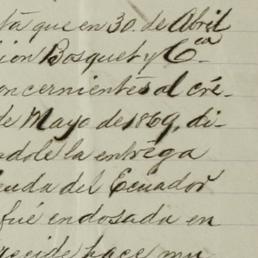 tá que en 30. de Abril
ion Bosquet y Cea
oncernientes al cré-
de Mayo de 1869, di-
ndole la entréga
euda del Ecuador
fué endosada en
hace mu